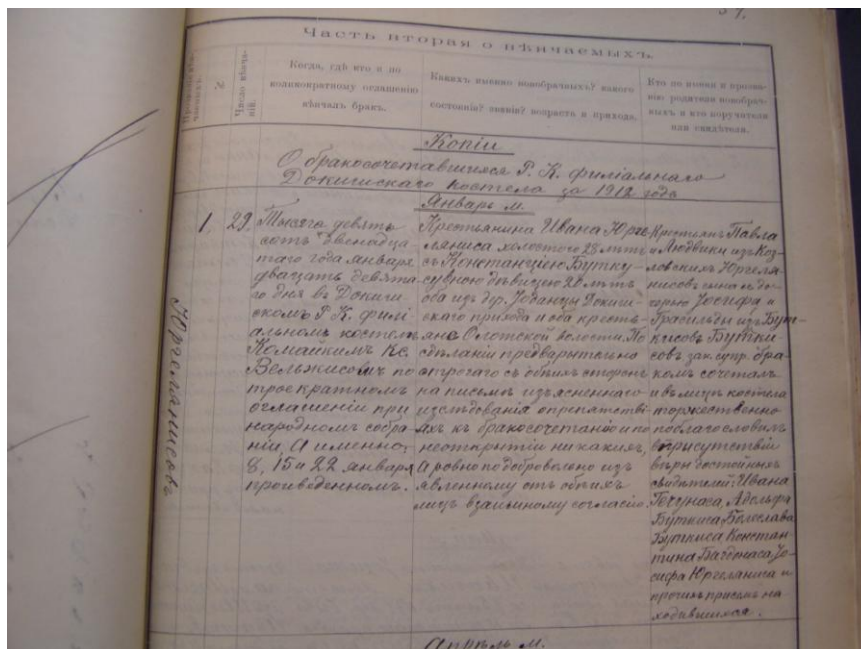 Часть вторая о вѣнчаемыхъ.
№
Число вѣнча-
ній.
Когда, гдѣ кто и по
коликократному оглашенію
вѣнчалъ бракъ.
Какихъ именно новобрачныхъ? какого
состоянія? званія? возраста и прихода.
Кто по имени и прозва-
нію родители новобрач-
ныхъ и кто поручители
или свидѣтели.
Копіи
О бракосочетавшихся Р. К. филіальнаго
Докишскаго костела за 1912 года
Январь м.
Юргелянисовъ
1. 29.
Тысяча девять
сотъ двенадца
таго года января
двацать девята-
го дня въ Докиш-
скомъ Р. К. филі
альномъ костелѣ
Комайкимъ Кс.
Вельжисович по
троекратномъ
оглашеніи при
народномъ собра-
ніи, а именно:
8, 15 и 22 января
произведенномъ.
Крестьянина Ивана Юрге-
ляниса холостого 28 лѣтъ
съ Констанціею Бутку-
сувною дѣвицею 20 лѣтъ
оба изъ дер. Докиш-
скаго прихода и оба кресть-
яне волости. По
сдѣланіи предварительно
строгаго съ обѣихъ сторонъ
на письмѣ изъясненнаго
изслѣдованія о препятстві-
яхъ къ бракосочетанію и по
неоткрытіи никакихъ,
а ровно по добровольно изъ
явленному отъ обѣихъ
лицъ взаимному согласію.
Крестьянъ Павла
и Людвики изъ Коз-
ловскихъ Юргеля-
нисовъ сына съ до-
черью Іосифа и
Грасильды изъ Бут-
кисовъ Бутки
совъ зак. супр. бра-
комъ сочеталъ
и въ лицѣ костела
торжественно
поблагословилъ
въ присутствіи
вѣры достойныхъ
свидѣтелей: Ивана
Адольфа
Буткиса, Болеслава
Буткиса Констан-
тина Багдонаса, Іо-
сифа Юргеляниса и
прочихъ при семъ на-
ходившихся.
Апрѣль м.